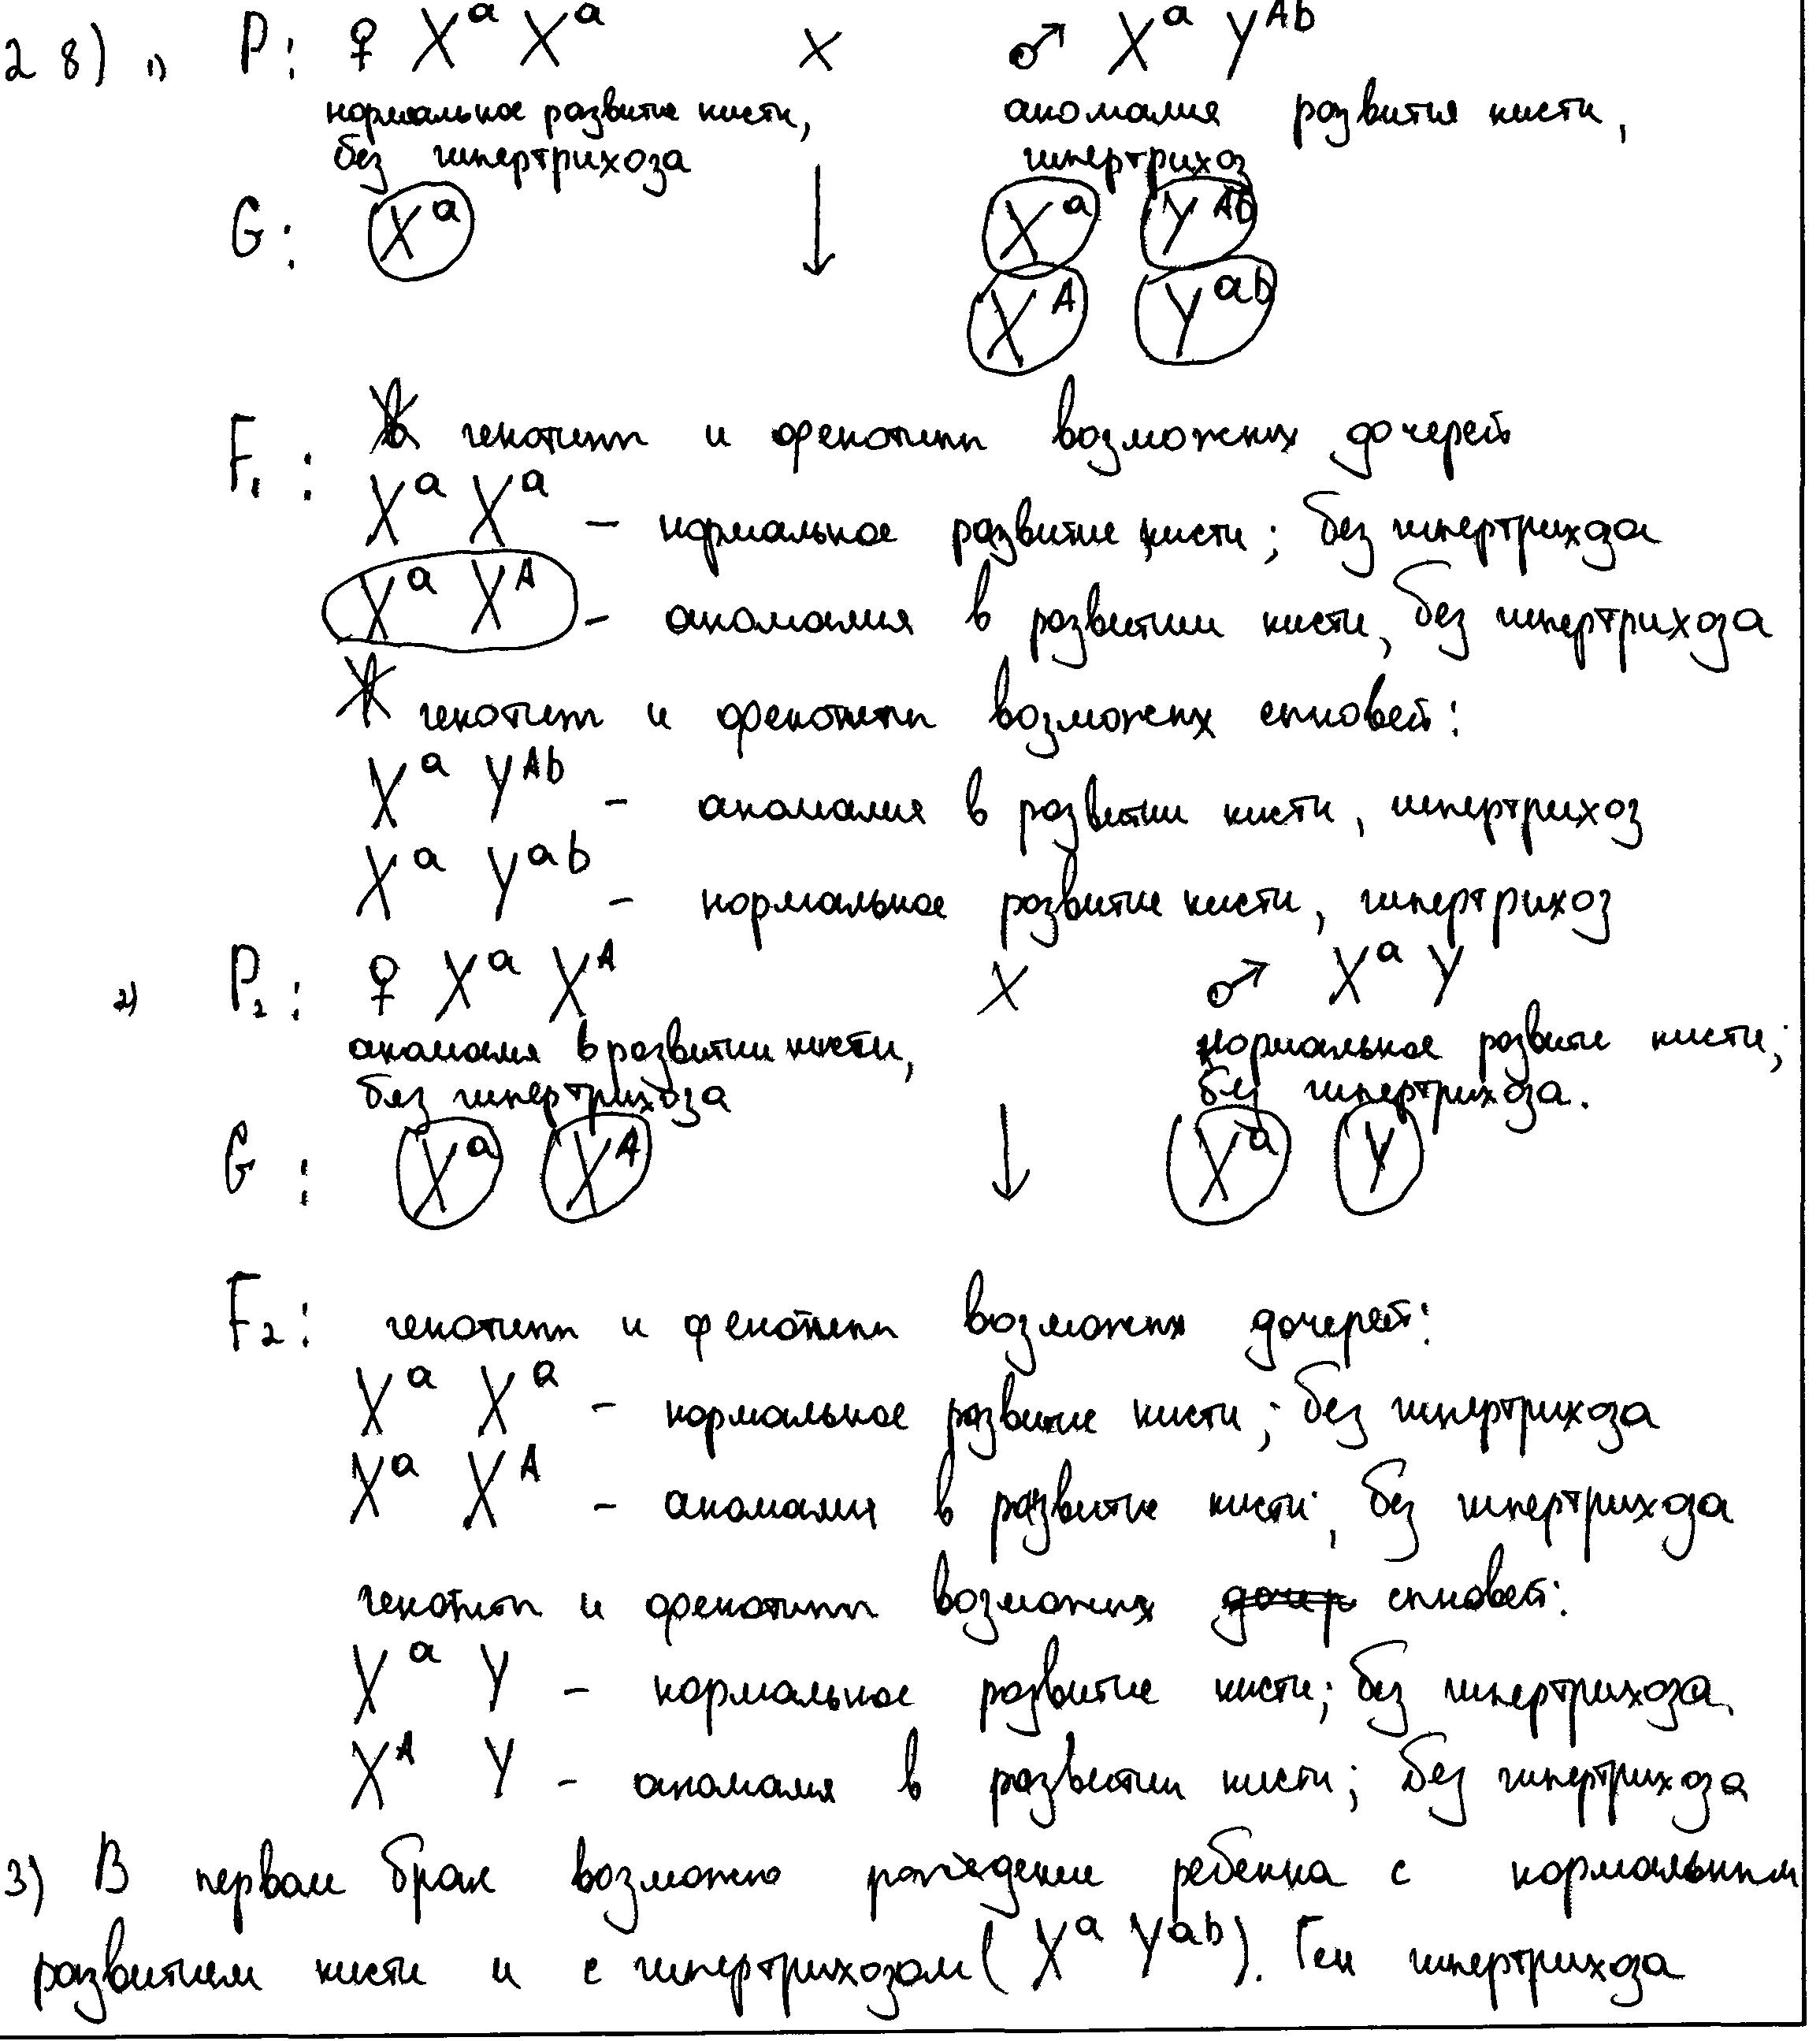 28) 1) P: ♀ X^a X^a × ♂ X^a Y^Ab
нормальное развитие кисти, аномалия развития кисти,
без гипертрихоза гипертрихоз
G: X^a ↓ X^a Y^Ab
X^A Y^ab
F₁: генотип и фенотип возможных дочерей
X^a X^a – нормальное развитие кисти; без гипертрихоза
X^a X^A – аномалия в развитии кисти, без гипертрихоза
генотип и фенотип возможных сыновей:
X^a Y^Ab – аномалия в развитии кисти, гипертрихоз
X^a Y^ab – нормальное развитие кисти, гипертрихоз
2) P₂: ♀ X^a X^A × ♂ X^a Y
аномалия в развитии кисти, нормальное развитие кисти;
без гипертрихоза без гипертрихоза.
G: X^a X^A ↓ X^a Y
F₂: генотип и фенотип возможных дочерей:
X^a X^a – нормальное развитие кисти; без гипертрихоза
X^a X^A – аномалия в развитие кисти, без гипертрихоза
генотип и фенотип возможных дочер сыновей:
X^a Y – нормальное развитие кисти; без гипертрихоза
X^A Y – аномалия в развитии кисти; без гипертрихоза
3) В первом браке возможно рождение ребенка с нормальным
развитием кисти и с гипертрихозом (X^a Y^ab). Ген гипертрихоза